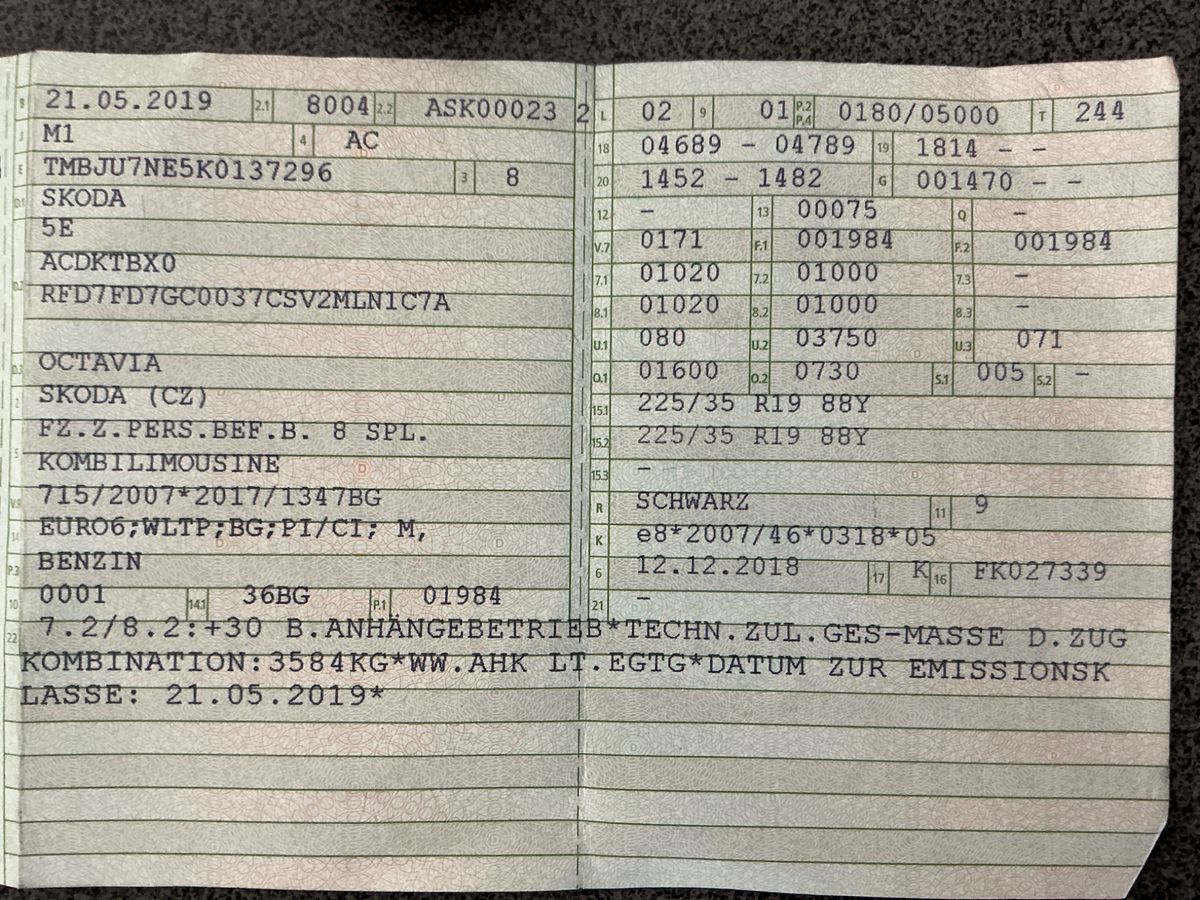 B 21.05.2019 2.1 8004 2.2 ASK00023 2
J M1 4 AC
E TMBJU7NE5K0137296 3 8
D.1 SKODA
5E
ACDKTBX0
D.2 RFD7FD7GC0037CSV2MLN1C7A
D.3 OCTAVIA
2 SKODA (CZ)
FZ.Z.PERS.BEF.B. 8 SPL.
5 KOMBILIMOUSINE
V.9 715/2007*2017/1347BG
14 EURO6;WLTP;BG;PI/CI; M,
P.3 BENZIN
10 0001 14.1 36BG P.1 01984
L 02 9 01 P.2 P.4 0180/05000 T 244
18 04689 - 04789 19 1814 - -
20 1452 - 1482 G 001470 - -
12 - 13 00075 Q -
V.7 0171 F.1 001984 F.2 001984
7.1 01020 7.2 01000 7.3 -
8.1 01020 8.2 01000 8.3 -
U.1 080 U.2 03750 U.3 071
O.1 01600 O.2 0730 S.1 005 S.2 -
15.1 225/35 R19 88Y
15.2 225/35 R19 88Y
15.3 -
R SCHWARZ 11 9
K e8*2007/46*0318*05
6 12.12.2018 17 K 16 FK027339
21 -
22 7.2/8.2:+30 B.ANHÄNGEBETRIEB*TECHN.ZUL.GES-MASSE D.ZUG
KOMBINATION:3584KG*WW.AHK LT.EGTG*DATUM ZUR EMISSIONSK
LASSE: 21.05.2019*